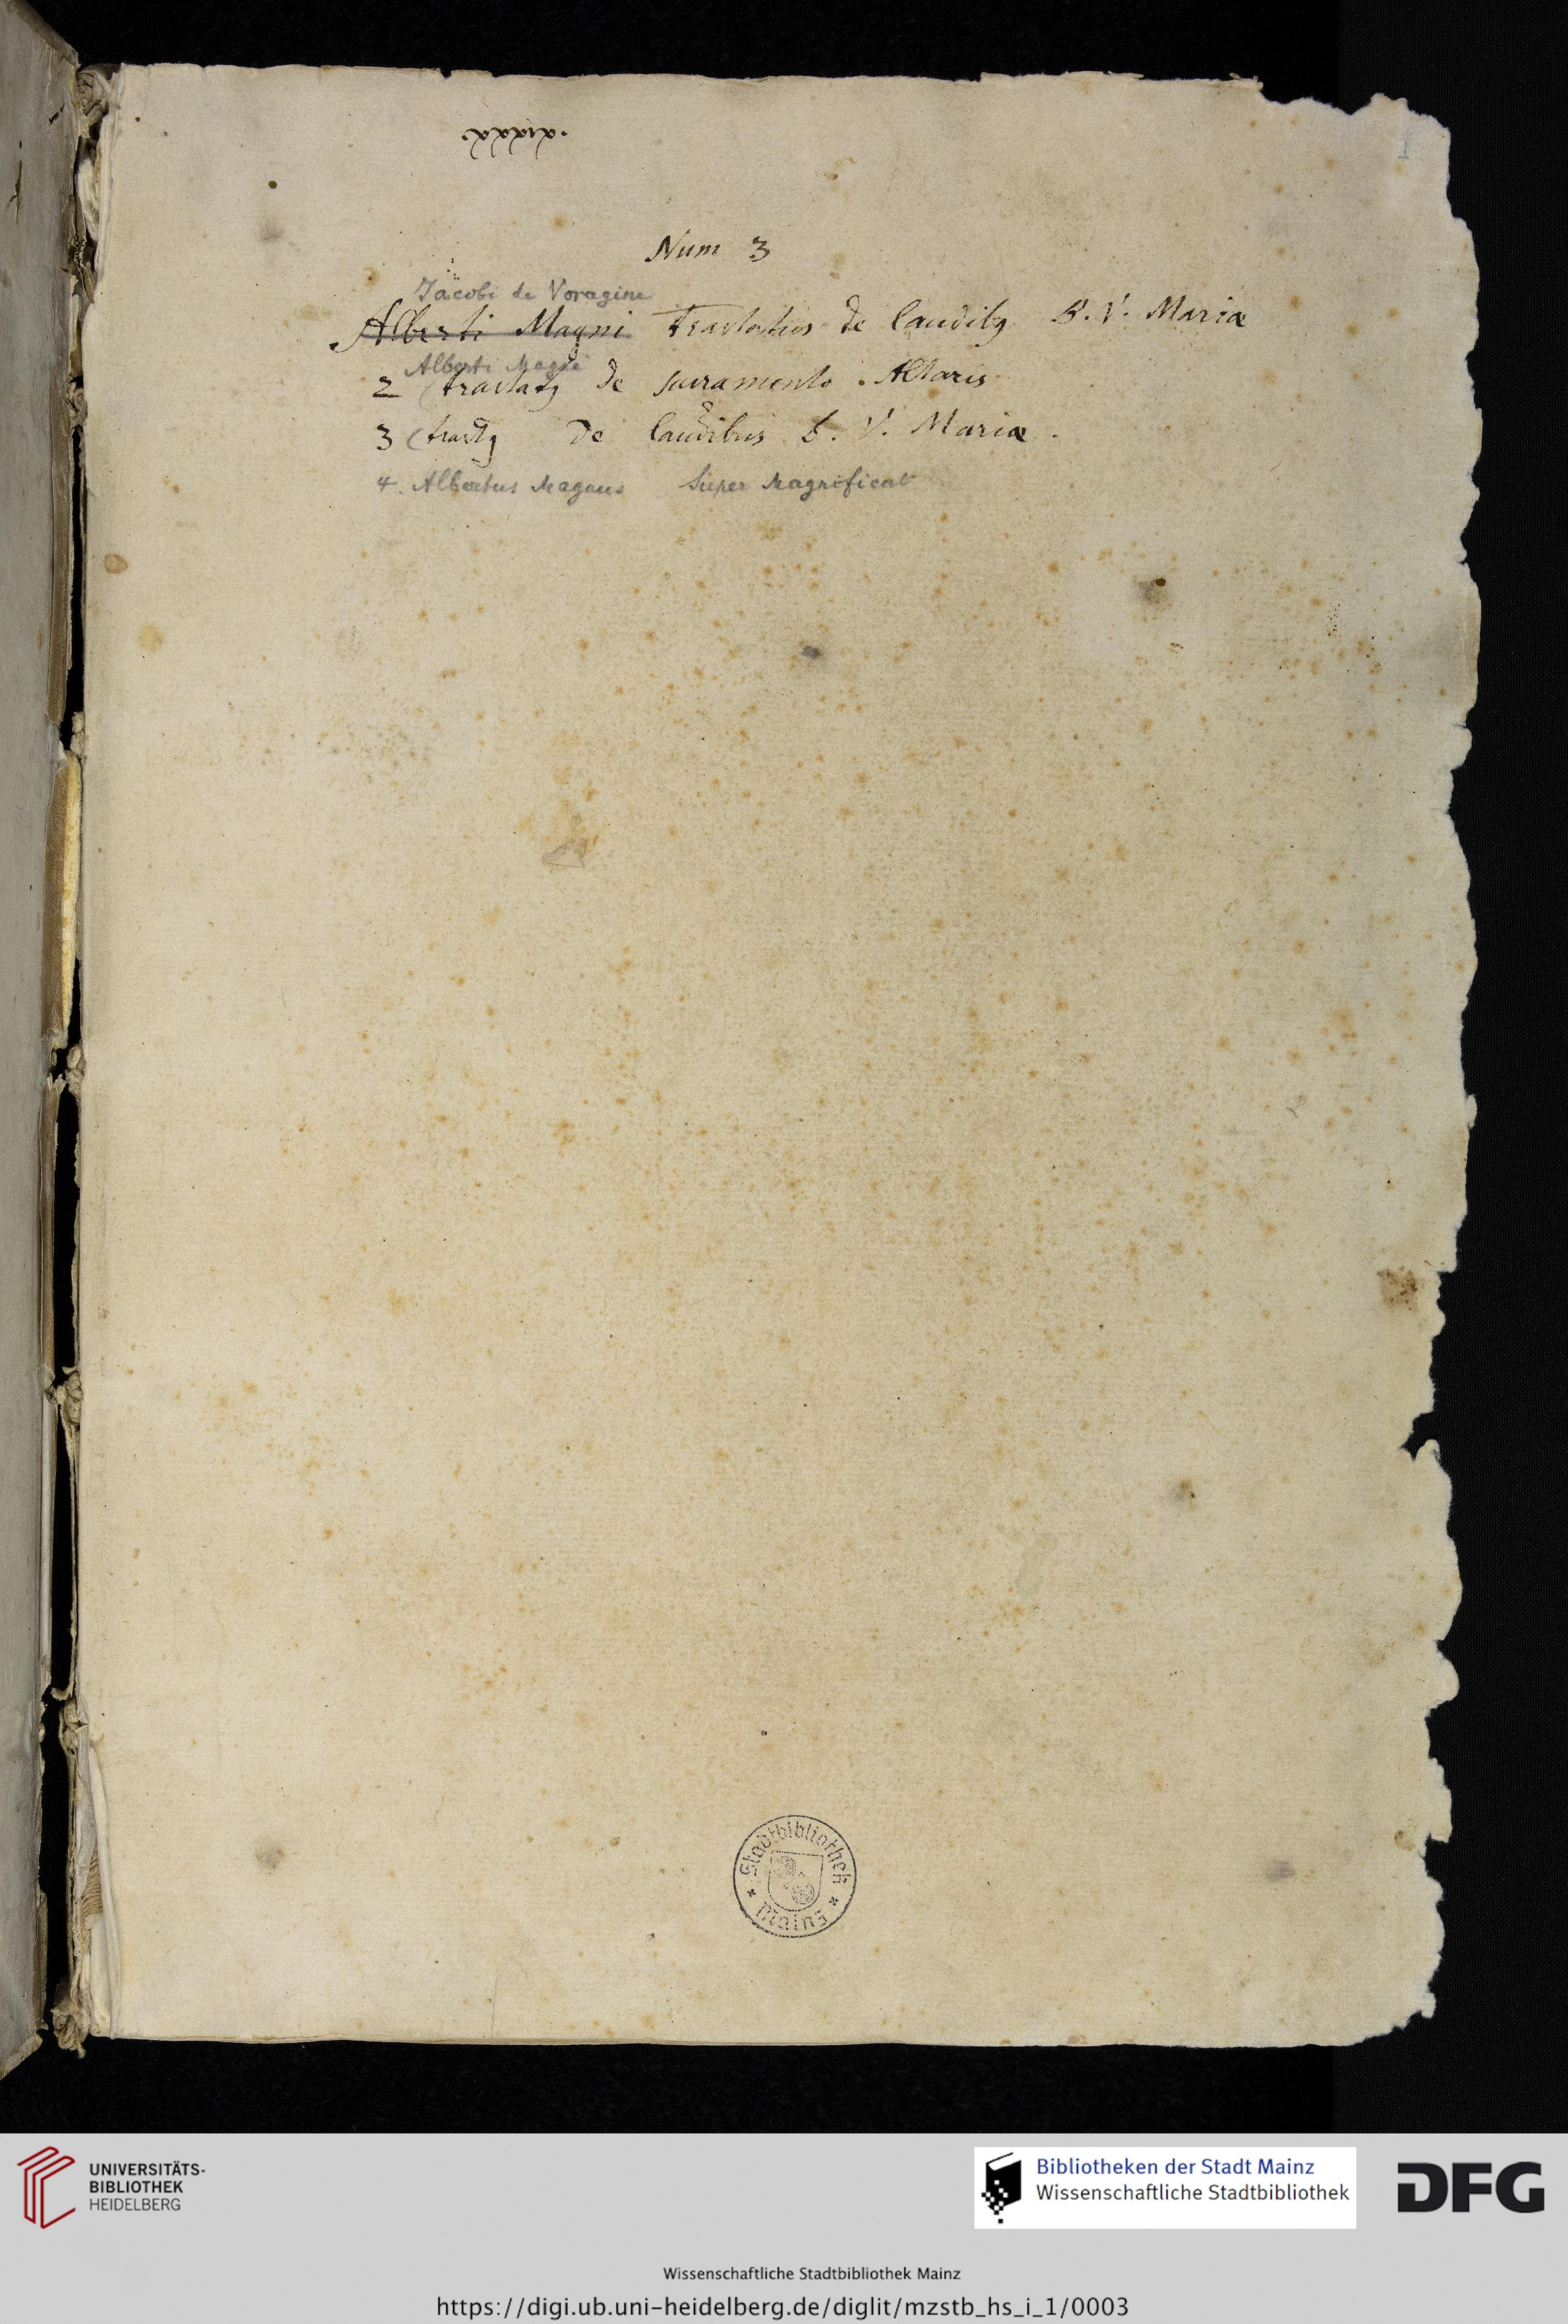 Num 3
Jacobi de Voragine
Alberti Magni Tractatus de laudibꝫ B. V. Mariæ
Alberti Magni
2 tractatꝫ de sacramento Altaris
3 tractꝫ De laudibus B. V. Mariæ.
4. Albertus Magnus Super Magnificat
Stadtbibliothek
Mainz
UNIVERSITÄTS-
BIBLIOTHEK
HEIDELBERG
Bibliotheken der Stadt Mainz
Wissenschaftliche Stadtbibliothek
DFG
Wissenschaftliche Stadtbibliothek Mainz
https://digi.ub.uni-heidelberg.de/diglit/mzstb_hs_i_1/0003